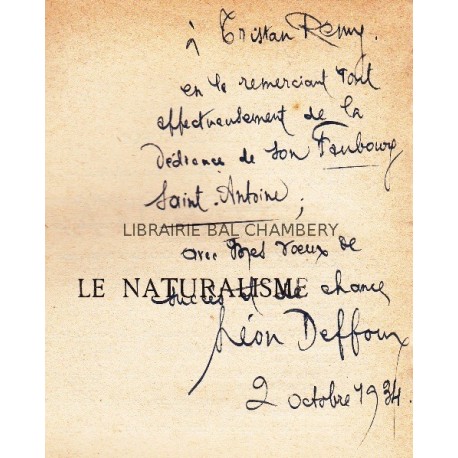 à Tristan Remy.
en le remerciant tout
affectueusement de la
dédicace de son Faubourg
Saint-Antoine,
LIBRAIRIE BAL CHAMBERY
avec mes vœux de
LE NATURALISME
succès et de chance
Léon Deffoux
2 octobre 1934.